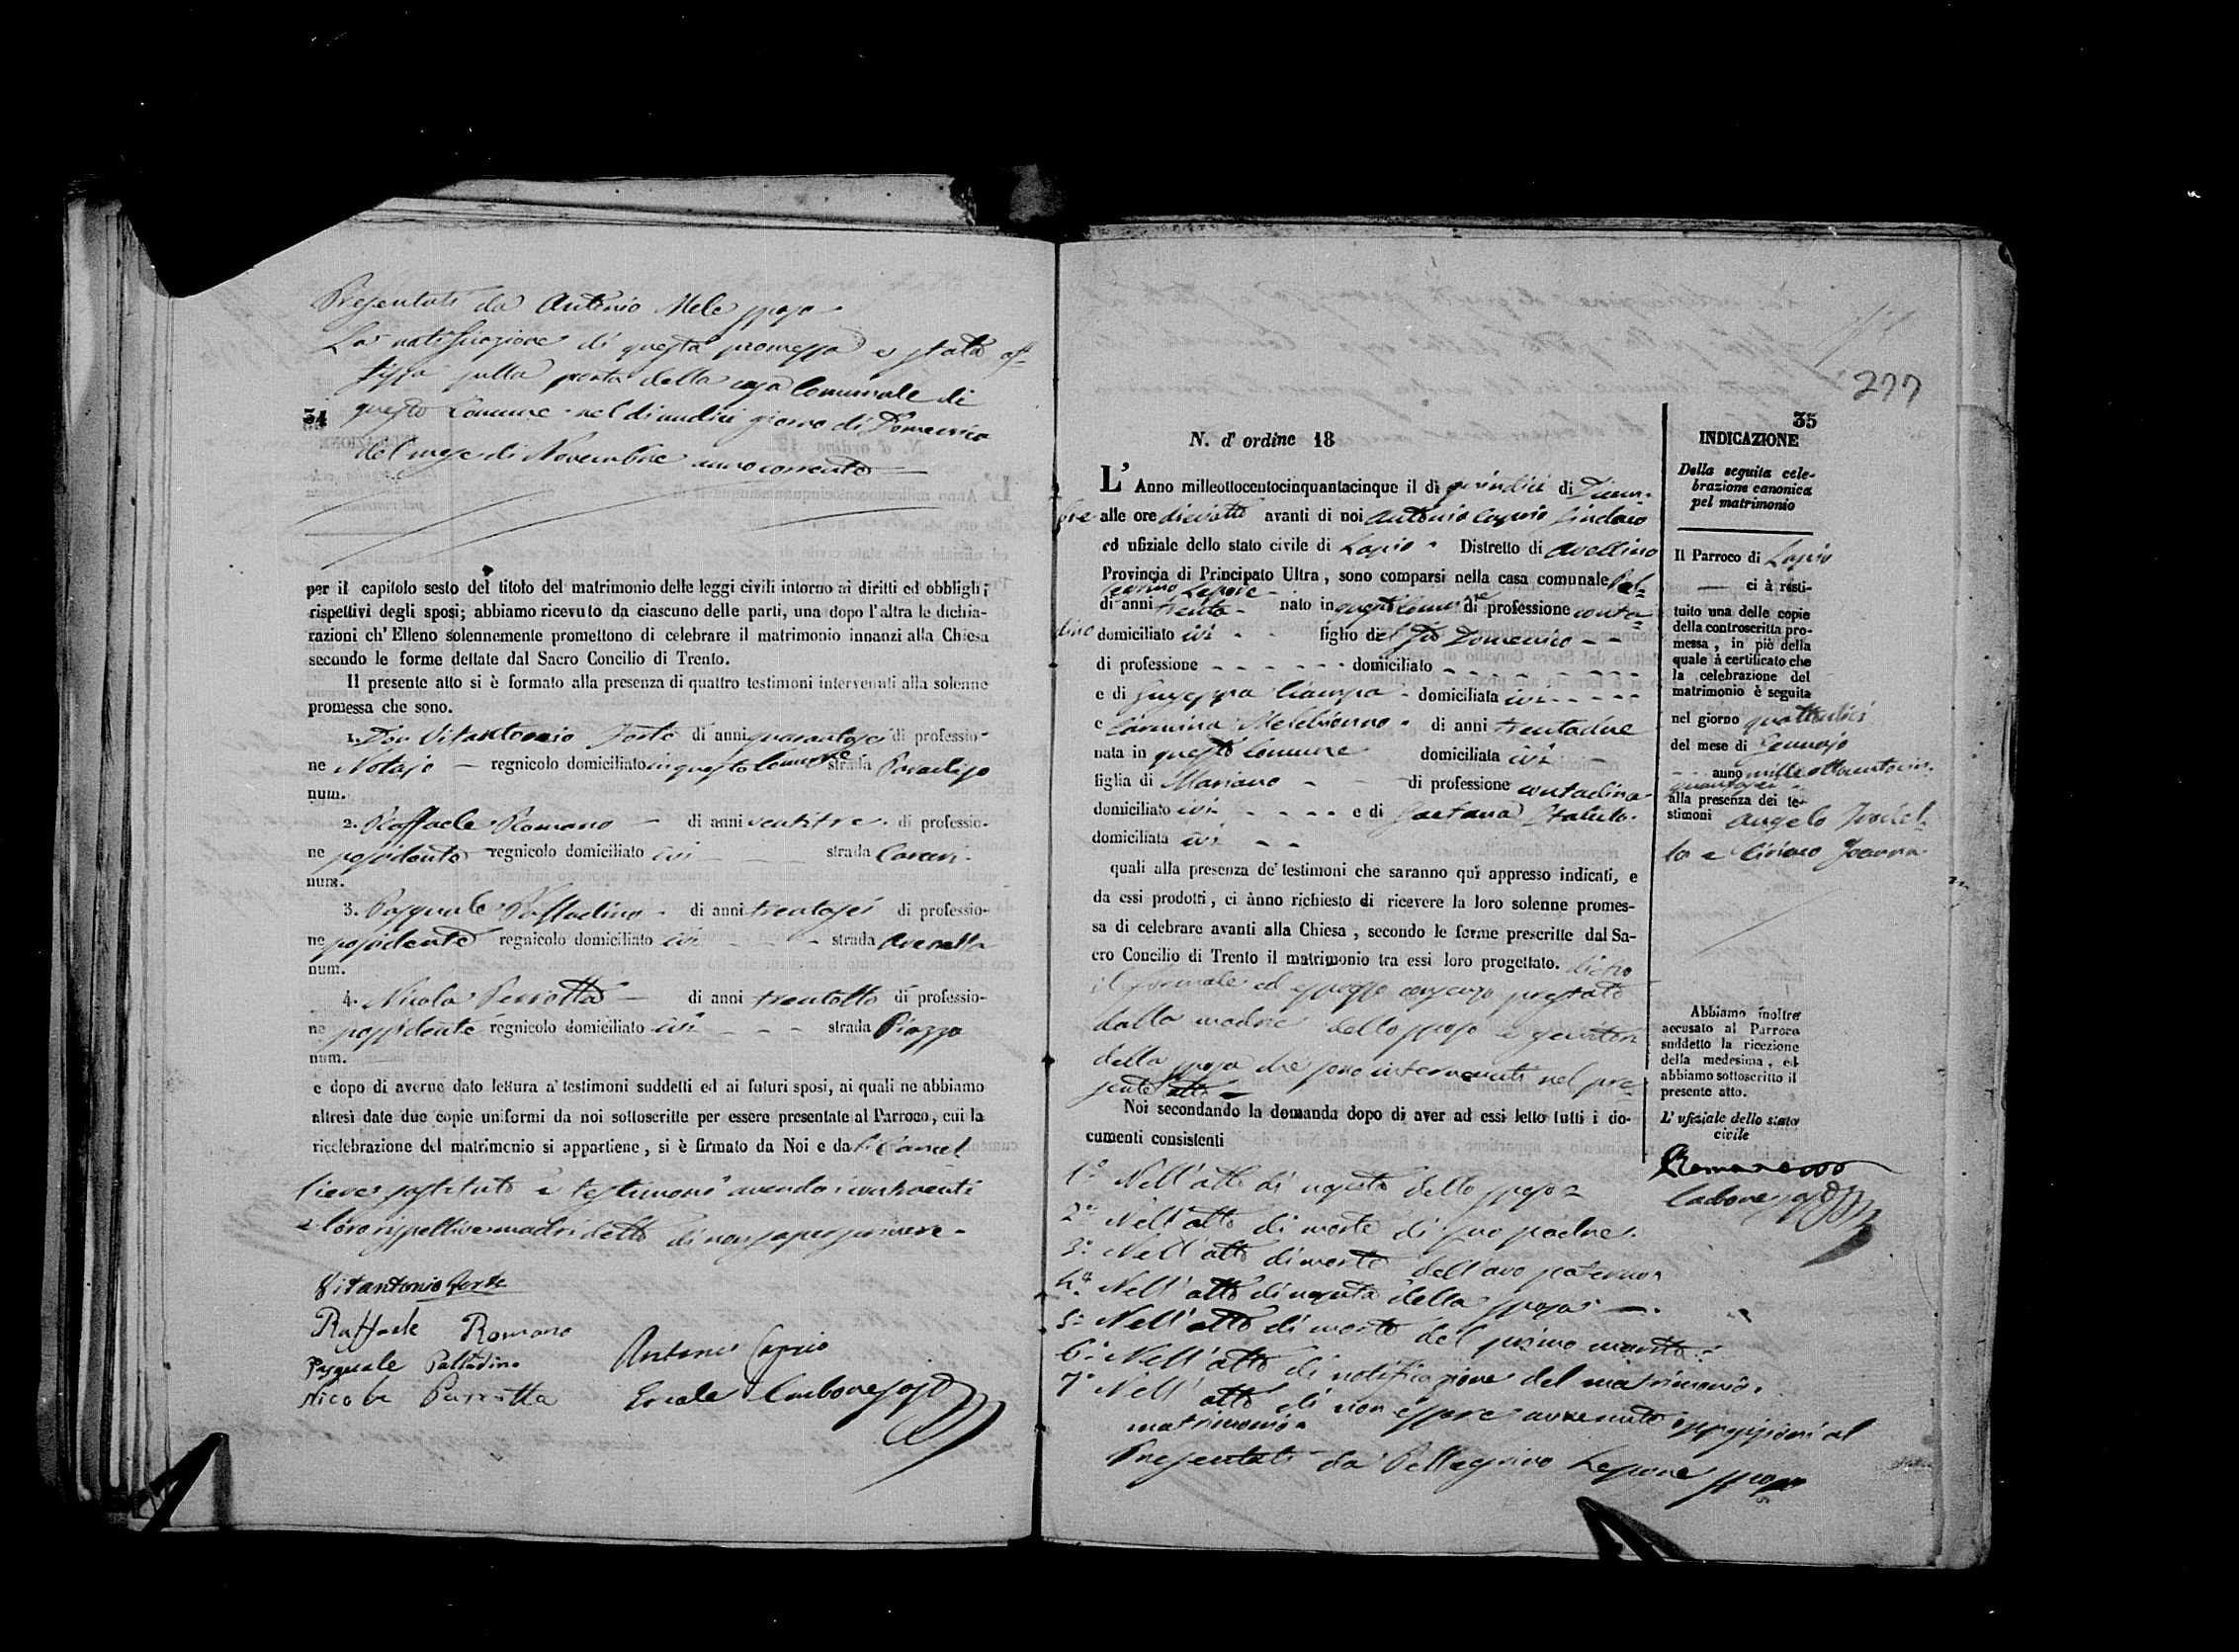 Presentati da Antonio Mele sposo
La notificazione di questa promessa è stata af-
fissa sulla porta della casa Comunale di
34
questo Comune nel dì undici giorno di Domenica
del mese di Novembre anno corrente
per il capitolo sesto del titolo del matrimonio delle leggi civili intorno ai diritti ed obblighi
rispettivi degli sposi; abbiamo ricevuto da ciascuno delle parti, una dopo l'altra le dichia-
razioni ch'Elleno solennemente promettono di celebrare il matrimonio innanzi alla Chiesa
secondo le forme dettate dal Sacro Concilio di Trento.
Il presente atto si è formato alla presenza di quattro testimoni intervenuti alla solenne
promessa che sono.
1. Don Vitantonio Forte di anni quarantasei di professio-
ne Notajo regnicolo domiciliato in questo Comune strada Paradiso
num.
2. Raffaele Romano di anni ventitre di professio-
ne possidente regnicolo domiciliato ivi strada
num.
3. Pasquale Palladino di anni trentasei di professio-
ne possidente regnicolo domiciliato ivi strada
num.
4. Nicola Perrotta di anni trentotto di professio-
ne possidente regnicolo domiciliato ivi strada Piazza
num.
e dopo di averne dato lettura a' testimoni suddetti ed ai futuri sposi, ai quali ne abbiamo
altresì date due copie uniformi da noi sottoscritte per essere presentate al Parroco, cui la
ricelebrazione del matrimonio si appartiene, si è firmato da Noi e dal Cancel
liere sostituto e testimoni avendo i contraenti
e loro rispettive madri detto di non saper scrivere
Vitantonio Forte
Raffaele Romano
Pasquale Palladino
Nicola Perrotta
Antonio Caprio
Ercole Carbone sost
277
35
N. d' ordine 18
L' Anno milleottocentocinquantacinque il dì quindici di Dicem-
bre alle ore diciotto avanti di noi Antonio Caprio Sindaco
ed ufiziale dello stato civile di Lapio Distretto di Avellino
Provincia di Principato Ultra, sono comparsi nella casa comunale Pel-
legrino Lepore
di anni trenta nato in questo Comune di professione conta-
dino domiciliato ivi figlio del fu Domenico
di professione - - - - - - domiciliato - - - - - -
e di Giuseppa Ciampa domiciliata ivi
e Carmina Melchionno di anni trentadue
nata in questo Comune domiciliata ivi
figlia di Mariano di professione contadino
domiciliato ivi e di Gaetana Statuto
domiciliata ivi
quali alla presenza de' testimoni che saranno qui appresso indicati, e
da essi prodotti, ci ànno richiesto di ricevere la loro solenne promes-
sa di celebrare avanti alla Chiesa, secondo le forme prescritte dal Sa-
cro Concilio di Trento il matrimonio tra essi loro progettato. Dietro
il formale ed espresso consenso prestato
dalla madre dello sposo e genitori
della sposa che sono intervenuti nel pre-
sente atto
Noi secondando la domanda dopo di aver ad essi letto tutti i do-
cumenti consistenti
1º Nell'atto di nascita dello sposo
2º Nell'atto di morte di suo padre.
3º Nell'atto di morte dell'avo paterno
4º Nell'atto di nascita della sposa
5º Nell'atto di morte del primo marito
6º Nell'atto di notificazione del matrimonio.
7º Nell'atto di non essere avvenuto opposizioni al
matrimonio
Presentati da Pellegrino Lepore sposo
INDICAZIONE
Della seguita cele-
brazione canonica
pel matrimonio
Il Parroco di Lapio
ci à resti-
tuito una delle copie
della controscritta pro-
messa, in piè della
quale à certificato che
la celebrazione del
matrimonio è seguita
nel giorno quattordici
del mese di Gennajo
anno milleottocentocin-
quantasei
alla presenza dei te-
stimoni Angelo
Abbiamo inoltre
accusato al Parroco
suddetto la ricezione
della medesima, ed
abbiamo sottoscritto il
presente atto.
L' ufiziale dello stato
civile
Romano
Carbone sost